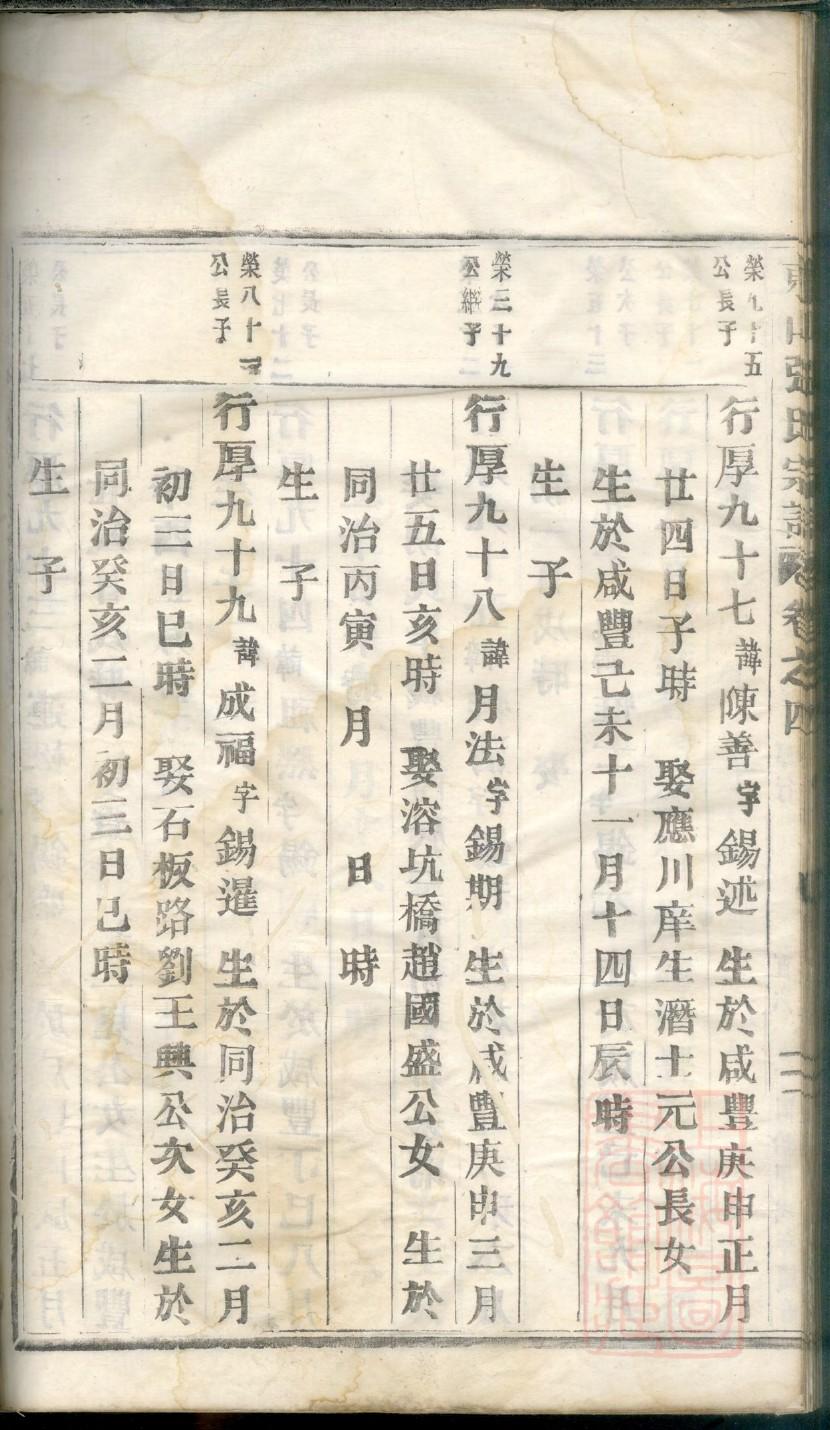 張氏宗譜 卷之四
榮九十五
公長子
行厚九十七諱陳善字錫述 生於咸豐庚申正月
廿四日子時 娶應川庠生潛士元公長女
生於咸豐己未十一月十四日辰時
生 子
榮三十九
公繼子
行厚九十八諱月法字錫期 生於咸豐庚申三月
廿五日亥時 娶溶坑橋趙國盛公女 生於
同治丙寅 月 日 時
生 子
榮八十
公長子
行厚九十九諱成福字錫暹 生於同治癸亥二月
初三日巳時 娶石板路劉王興公次女生於
同治癸亥二月初三日巳時
生 子